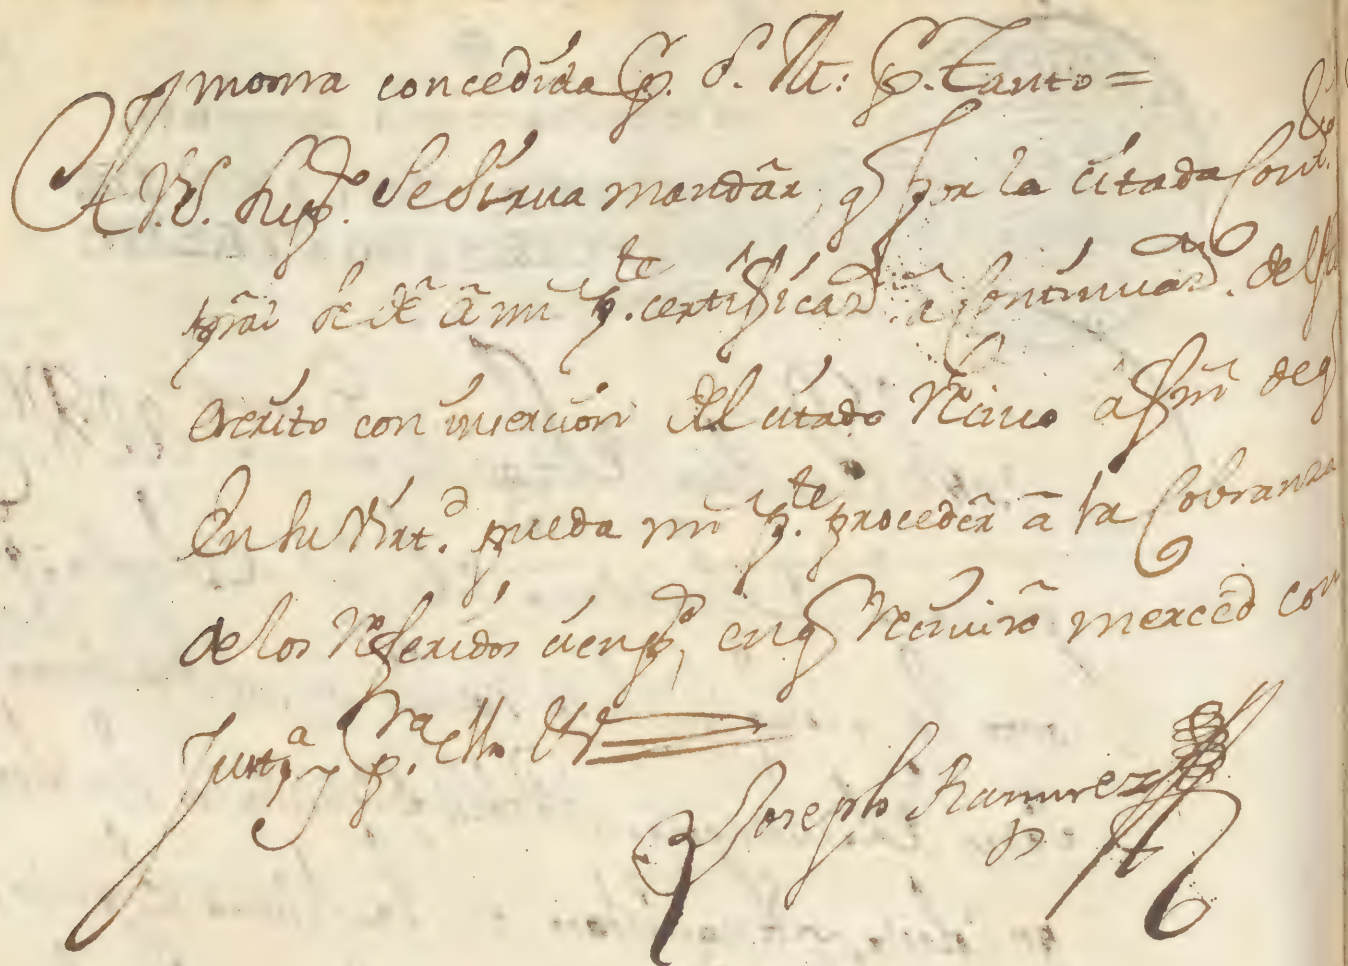 mosna concedida p. S. M.: p. Tanto =
A V.S. Supp.co Se Sirva mandar, q por la citada Cont.
pral se dè à mi p.te certificaz.n à Continuaz.n del
escrito con inserción del citado Recivo à fin de q
En su Virt.d pueda mi p.te proceder à la Cobranza
de los Referidos cien p.s, en q Recivirà merced con
Just.a y p.a ello &a
Joseph Ramirez